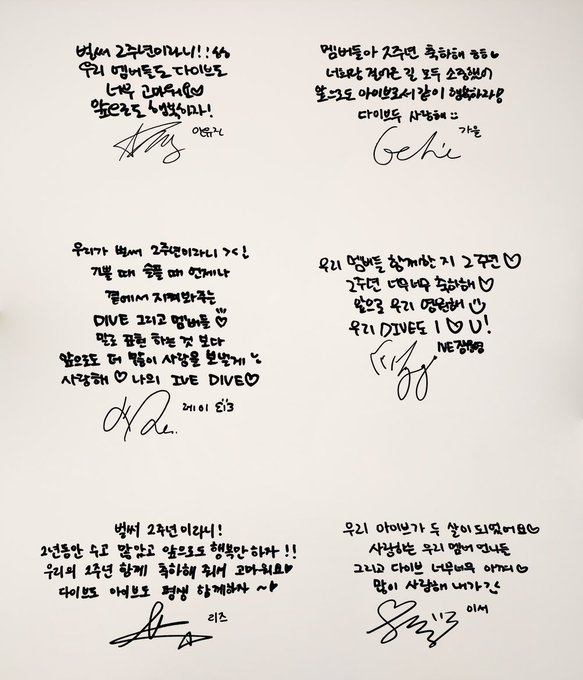 벌써 2주년이라니!! ㅠㅠ
우리 멤버들도 다이브도
너무 고마워요♡
앞으로도 행복하자!
안유진
멤버들아 2주년 축하해 ㅎㅎ♡
너희랑 걸어온 길 모두 소중했어
앞으로도 아이브로서 같이 행복하자!
다이브두 사랑해 :)
가을
우리가 벌써 2주년이라니 ><!
기쁠 때 슬플 때 언제나
곁에서 지켜봐주는
DIVE 그리고 멤버들 ♡
말로 표현 하는 것 보다
앞으로도 더 많이 사랑을 보낼게
사랑해 ♡ 나의 IVE DIVE♡
레이
우리 멤버들 함께한 지 2주년♡
2주년 너무너무 축하해♡
앞으로 우리 영원해
우리 DIVE도 I ♡ U!
IVE 장원영
벌써 2주년이라니!
2년동안 수고 많았고 앞으로도 행복만 하자 !!
우리의 2주년 함께 축하해 줘서 고마워요♥
다이브도 아이브도 평생 함께하자 ~♥
리즈
우리 아이브가 두 살이 되었어요♡
사랑하는 우리 멤버 언니들
그리고 다이브 너무너무 아껴♡
많이 사랑해 내가
이서